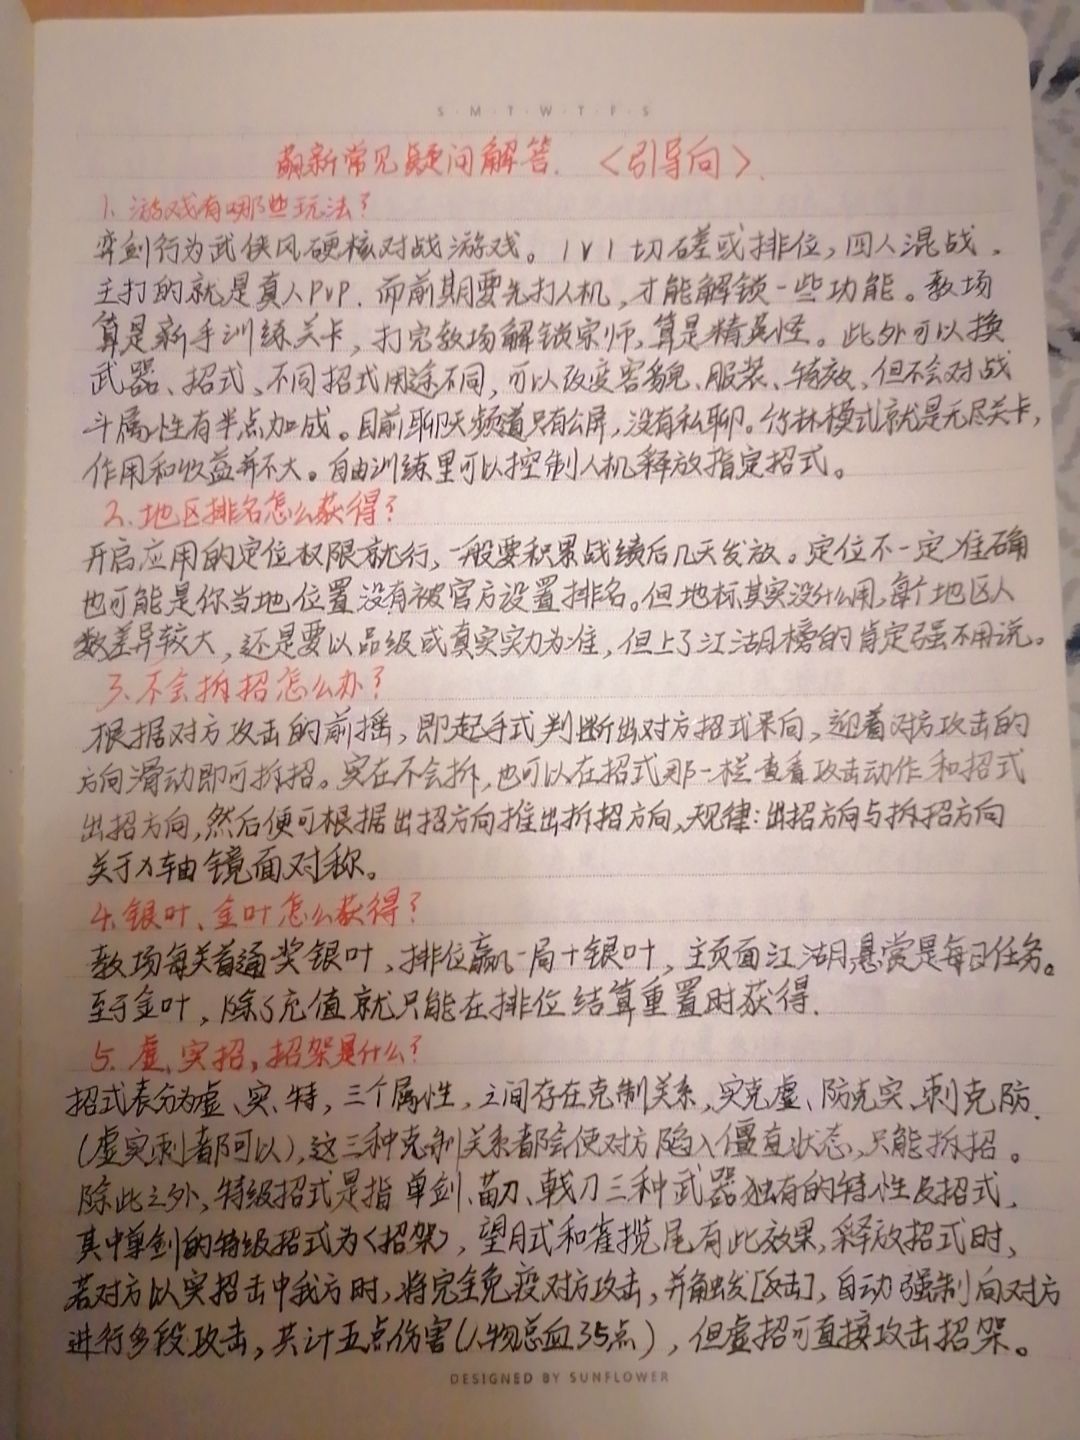 S·M·T·W·T·F·S
萌新常见疑问解答.〈引导向〉.
1. 游戏有哪些玩法?
弈剑行为武侠风硬核对战游戏。1V1切磋或排位,四人混战.
主打的就是真人PVP.而前期要先打人机,才能解锁一些功能。教场
算是新手训练关卡,打完教场解锁宗师,算是精英怪。此外可以换
武器、招式、不同招式用途不同,可以改变容貌、服装、特效、但不会对战
斗属性有半点加成。目前聊天频道只有公屏,没有私聊。竹林模式就是无尽关卡,
作用和收益并不大。自由训练里可以控制人机释放指定招式。
2.地区排名怎么获得?
开启应用的定位权限就行,一般要积累战绩后几天发放。定位不一定准确
也可能是你当地位置没有被官方设置排名。但地标其实没什么用,每个地区人
数差异较大,还是要以品级或真实实力为准,但上了江湖月榜的肯定强不用说。
3.不会拆招怎么办?
根据对方攻击的前摇,即起手式判断出对方招式来向,迎着对方攻击的
方向滑动即可拆招。实在不会拆,也可以在招式那一栏查看攻击动作和招式
出招方向,然后便可根据出招方向推出拆招方向,规律:出招方向与拆招方向
关于入轴镜面对称。
4.银叶、金叶怎么获得?
教场每关首通奖银叶,排位赢一局十银叶,主页面江湖悬赏是每日任务。
至于金叶,除了充值就只能在排位结算重置时获得.
5.虚、实招,招架是什么?
招式表分为虚、实、特,三个属性,之间存在克制关系,实克虚、防克实、刺克防.
(虚实刺都可以),这三种克制关系都会使对方陷入僵直状态,只能拆招。
除此之外,特级招式是指单剑、苗刀、戟刀三种武器独有的特性及招式.
其中单剑的特级招式为〈招架〉,望月式和雀揽尾有此效果,释放招式时,
若对方以实招击中我方时,将完全免疫对方攻击,并触发[反击],自动强制向对方
进行多段攻击,共计五点伤害(人物总血35点),但虚招可直接攻击招架。
DESIGNED BY SUNFLOWER